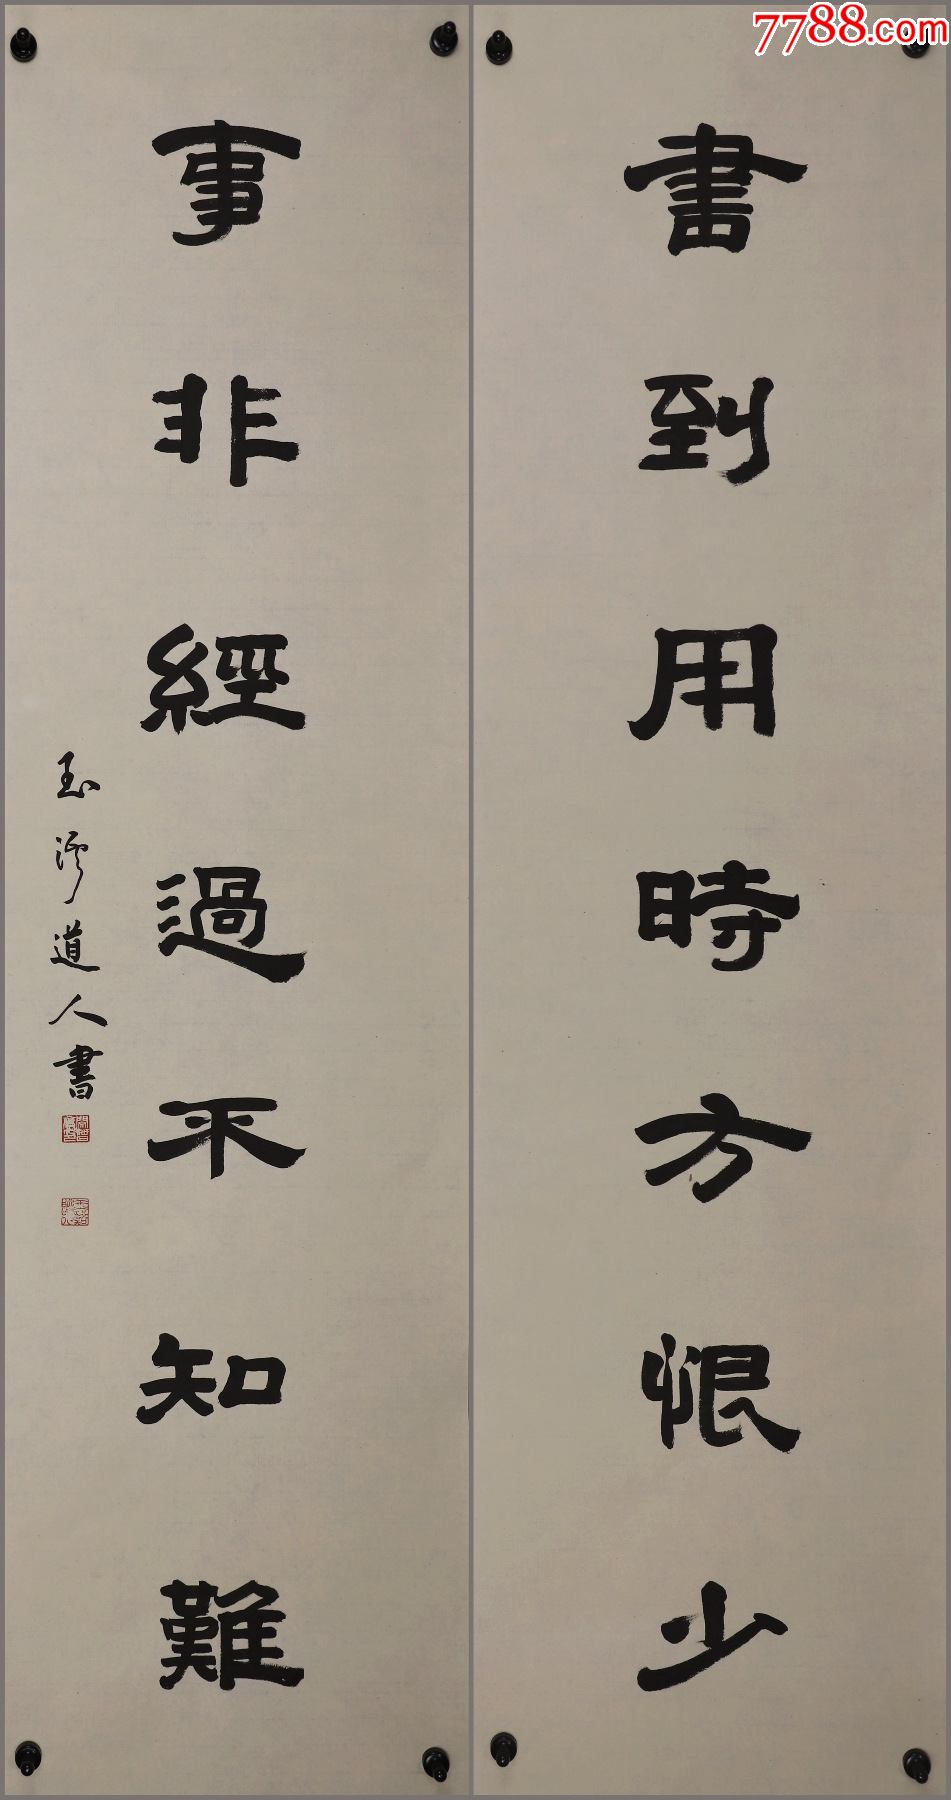 7788.com
書到用時方恨少
事非經過不知難
道人書